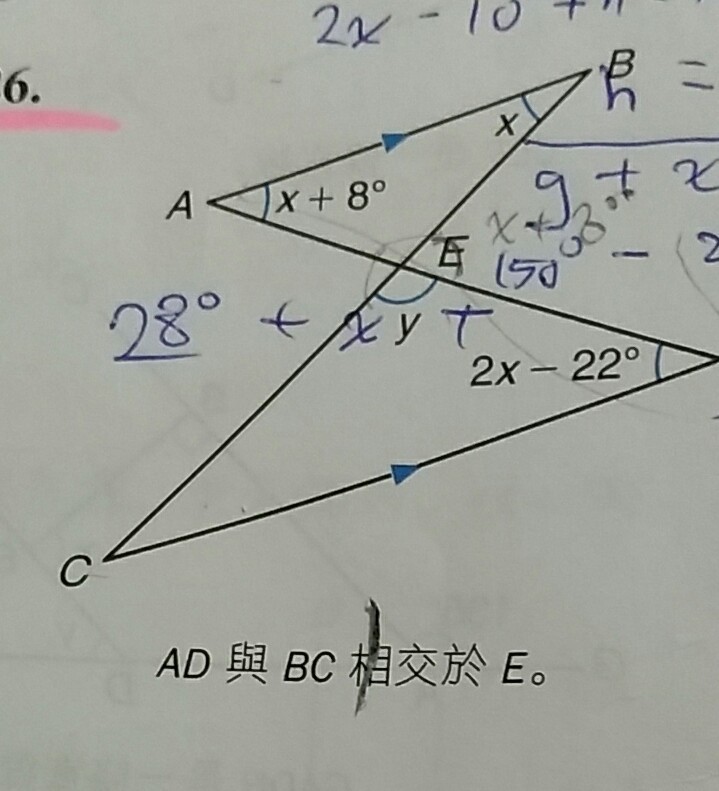 2x - 10 +
6.
B
h =
x
A
x + 8°
9 + x
x + 8°
E
150° - (2
28° + x y +
2x − 22°
C
AD 與 BC 相交於 E。